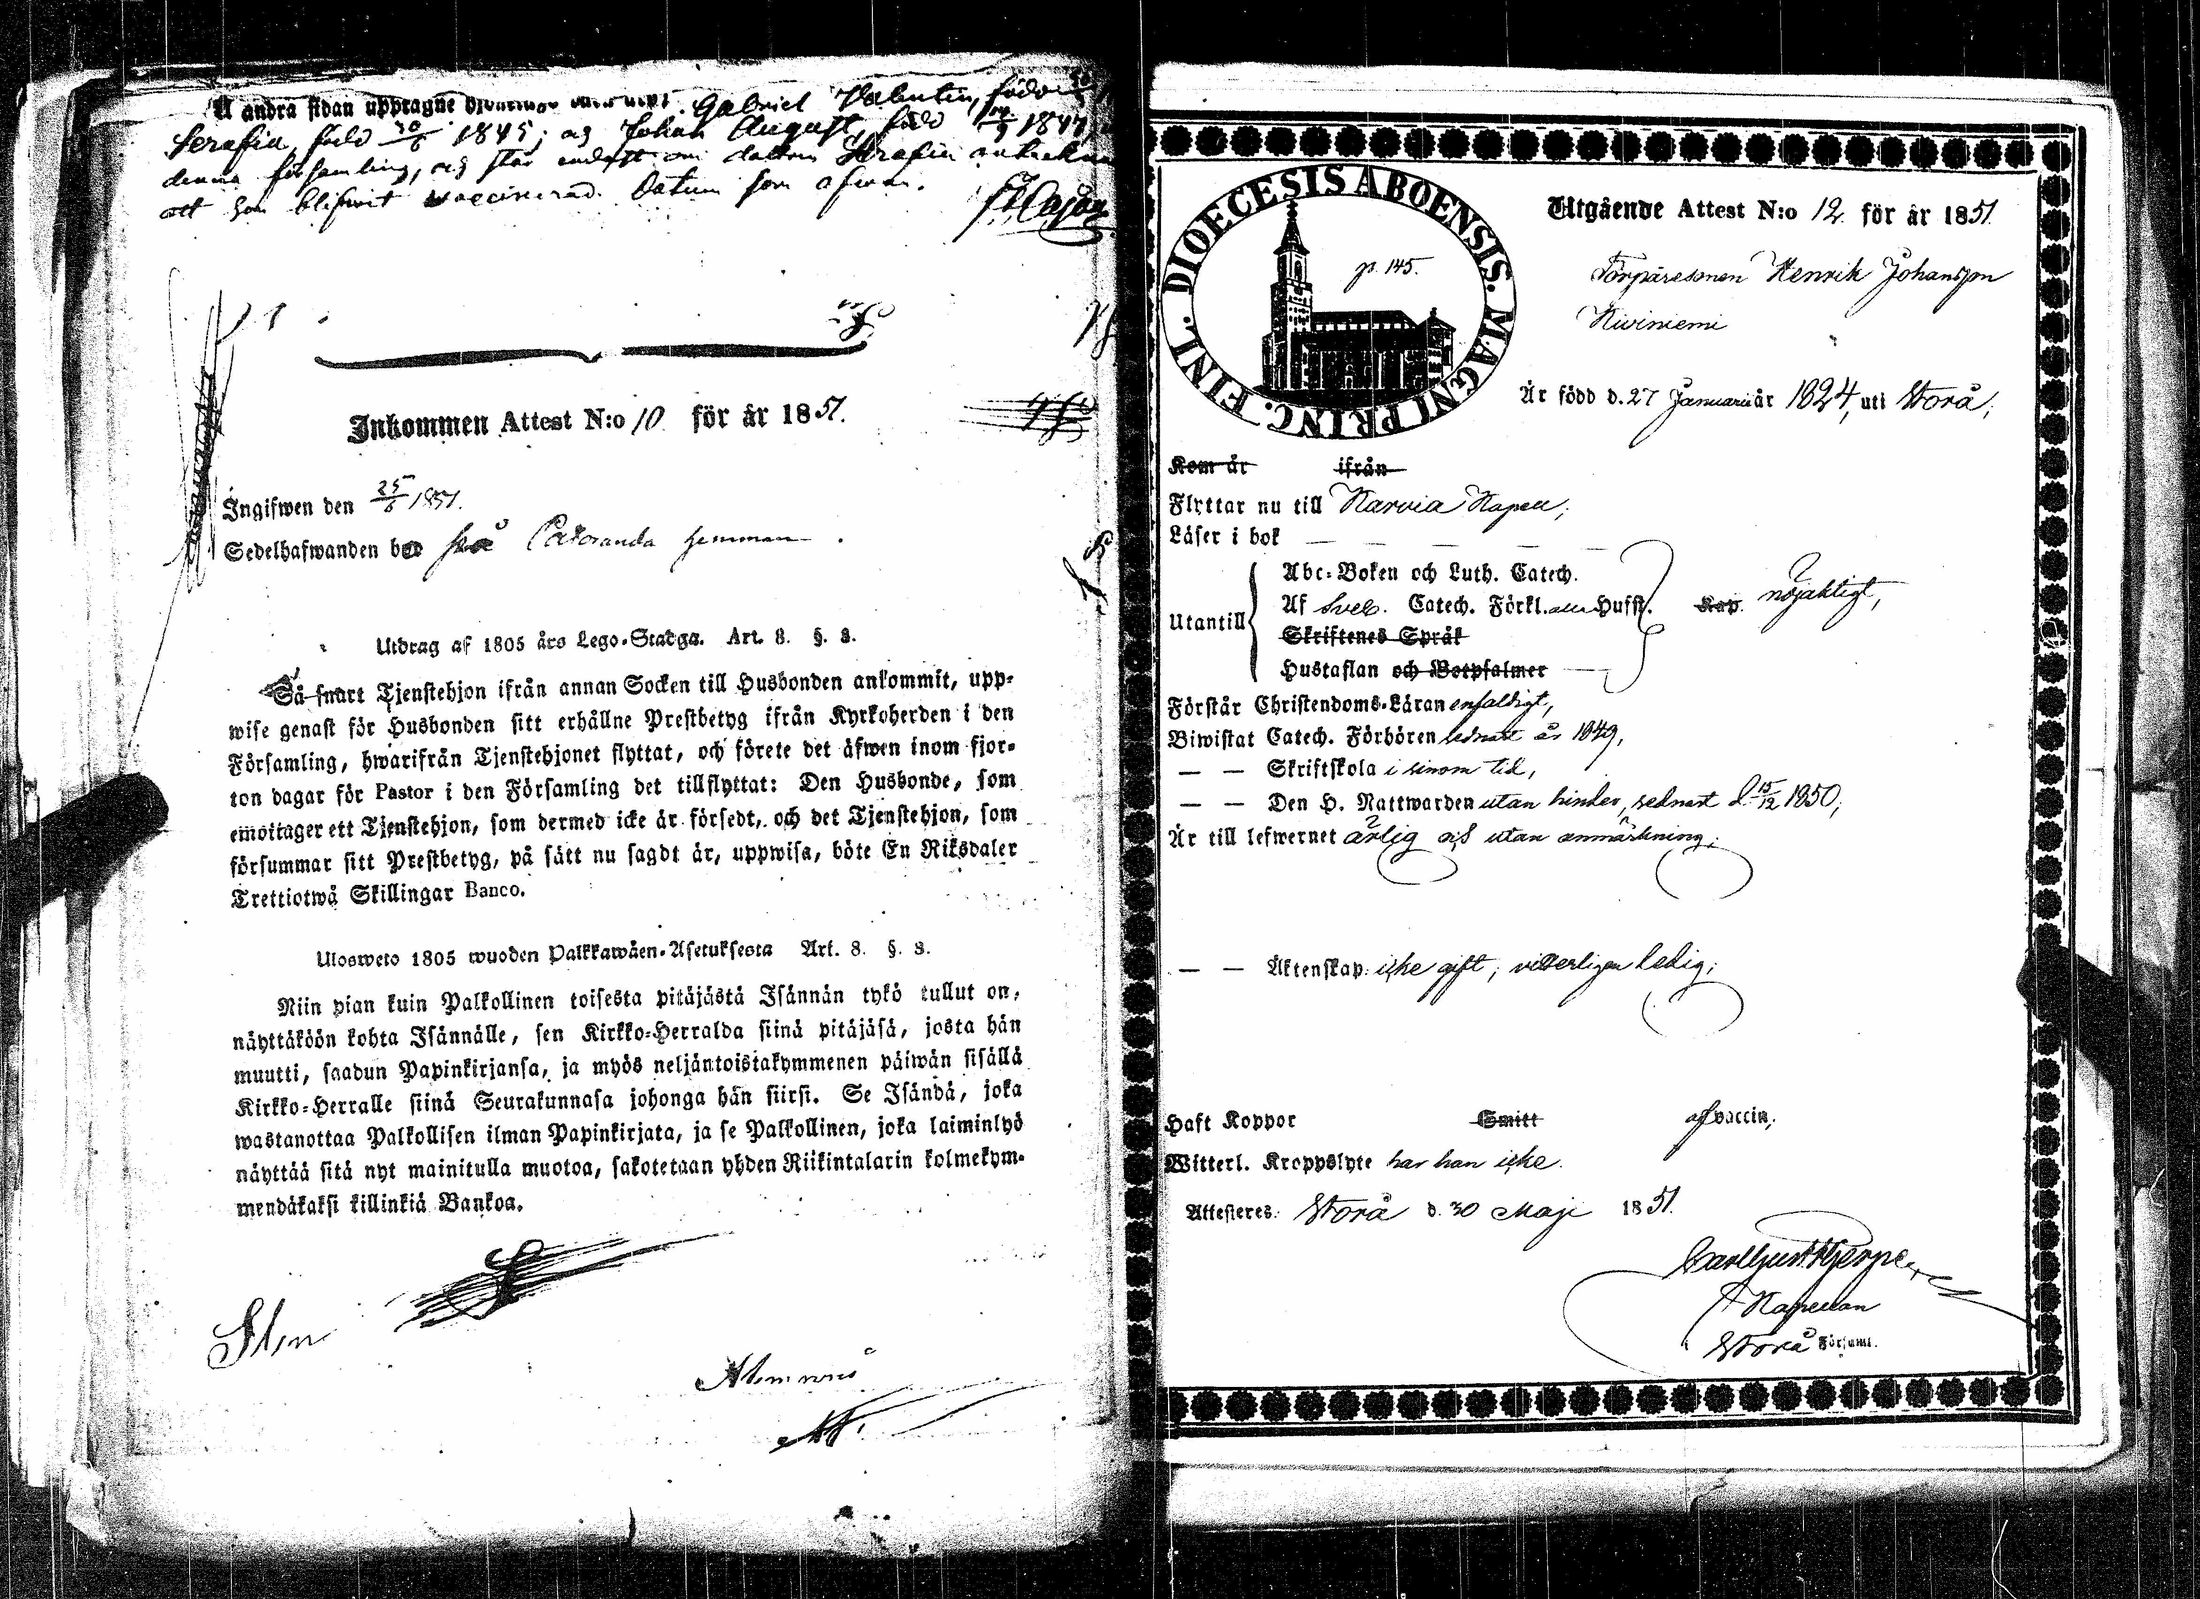 Å andra sidan upptagne Gabriel Valentin, född
Serafia, född 30/6 1845; og Johan August, född 14/9 1847,
denna församling, og står endast om dottren Serafia anteknat
att hon blifwit vaccinerad. Datum som ofwan.
Inkommen Attest N:o 10 för år 1851.
Ingifwen den 25/6 1851.
Sedelhafwanden bor på hemman.
Utdrag af 1805 års Lego-Stadga. Art. 8. §. 3.
Så snart Tjenstehjon ifrån annan Socken till Husbonden ankommit, upp-
wise genast för Husbonden sitt erhållne Prestbetyg ifrån Kyrkoherden i den
Församling, hwarifrån Tjenstehjonet flyttat, och förete det äfwen inom fjor-
ton dagar för Pastor i den Församling det tillflyttat: Den Husbonde, som
emottager ett Tjenstehjon, som dermed icke är försedt, och det Tjenstehjon, som
försummar sitt Prestbetyg, på sätt nu sagdt är, uppwisa, böte En Riksdaler
Trettiotwå Skillingar Banco.
Ulosweto 1805 wuoden Palkkawäen-Asetuksesta Art. 8. §. 3.
Niin pian kuin Palkollinen toisesta pitäjästä Isännän tykö tullut on,
näyttäköön kohta Isännälle, sen Kirkko-Herralda siinä pitäjäsä, josta hän
muutti, saadun Papinkirjansa, ja myös neljäntoistakymmenen päiwän sisällä
Kirkko-Herralle siinä Seurakunnasa johonga hän siirsi. Se Isändä, joka
wastanottaa Palkollisen ilman Papinkirjata, ja se Palkollinen, joka laiminlyö
näyttää sitä nyt mainitulla muotoa, sakotetaan yhden Riikintalarin kolmekym-
mendäkaksi killinkiä Bankoa.
DIOECESIS ABOENSIS. MAGNI PRINC. FINL.
p. 145.
Utgående Attest N:o 12 för år 1851.
Torpäresonen Henrik Johansson
Kiviniemi
Är född d. 27 Januarii år 1824, uti Storå;
Kom år ifrån
Flyttar nu till Karvia Kapell;
Läser i bok — — — — —
Utantill
Abc-Boken och Luth. Catech.
Af Sveb. Catech. Förkl. Husst. Kap. nöjaktigt,
Skriftenes Språk
Hustaflan och Botpsalmer —
Förstår Christendoms-Läran enfaldigt,
Biwistat Catech. Förhören sednast år 1849,
— — Skriftskola i sinom tid,
— — Den H. Nattwarden utan hinder, sednast d. 15/12 1850;
Är till lefwernet ärlig och utan anmärkning;
— — Äktenskap: icke gift, vitterligen ledig;
Haft Koppor Smitt af vaccin;
Witterl. Kroppslyte har han icke.
Attesteres: Storå d. 30 Maji 1851.
Kapellan
Storå Församl.